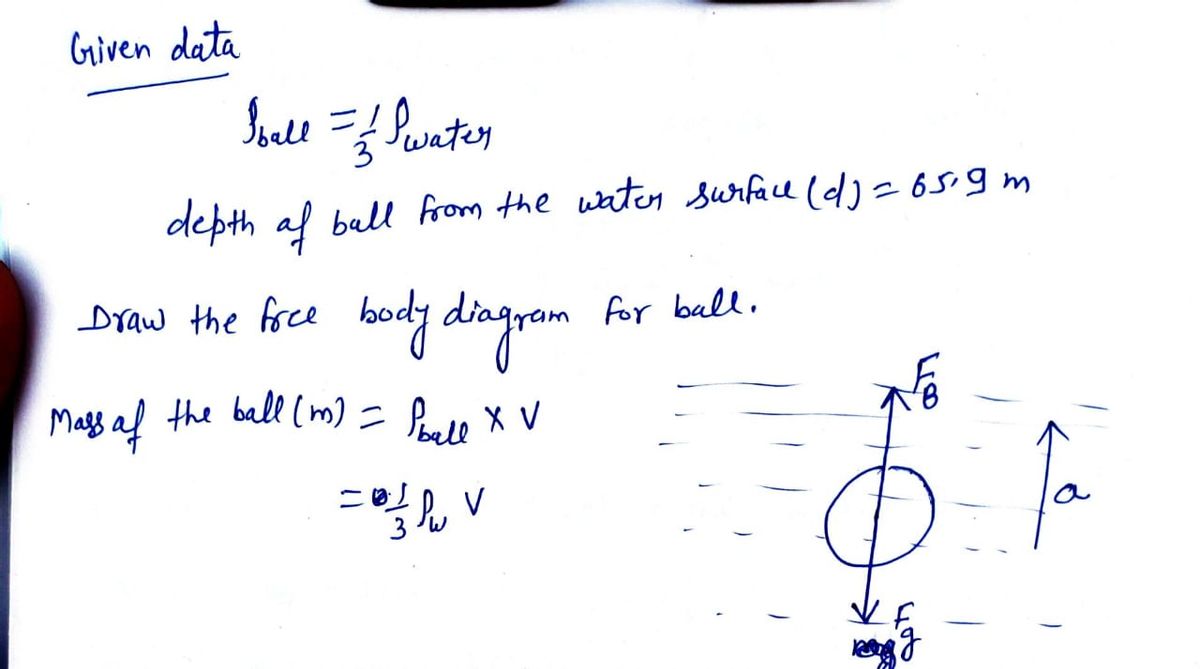 Given data
ρball = 1/3 ρwater
depth of ball from the water surface (d) = 65.9 m
Draw the free body diagram for ball.
Mass of the ball (m) = ρball X V
= 1/3 ρw V
FB
a
Fg